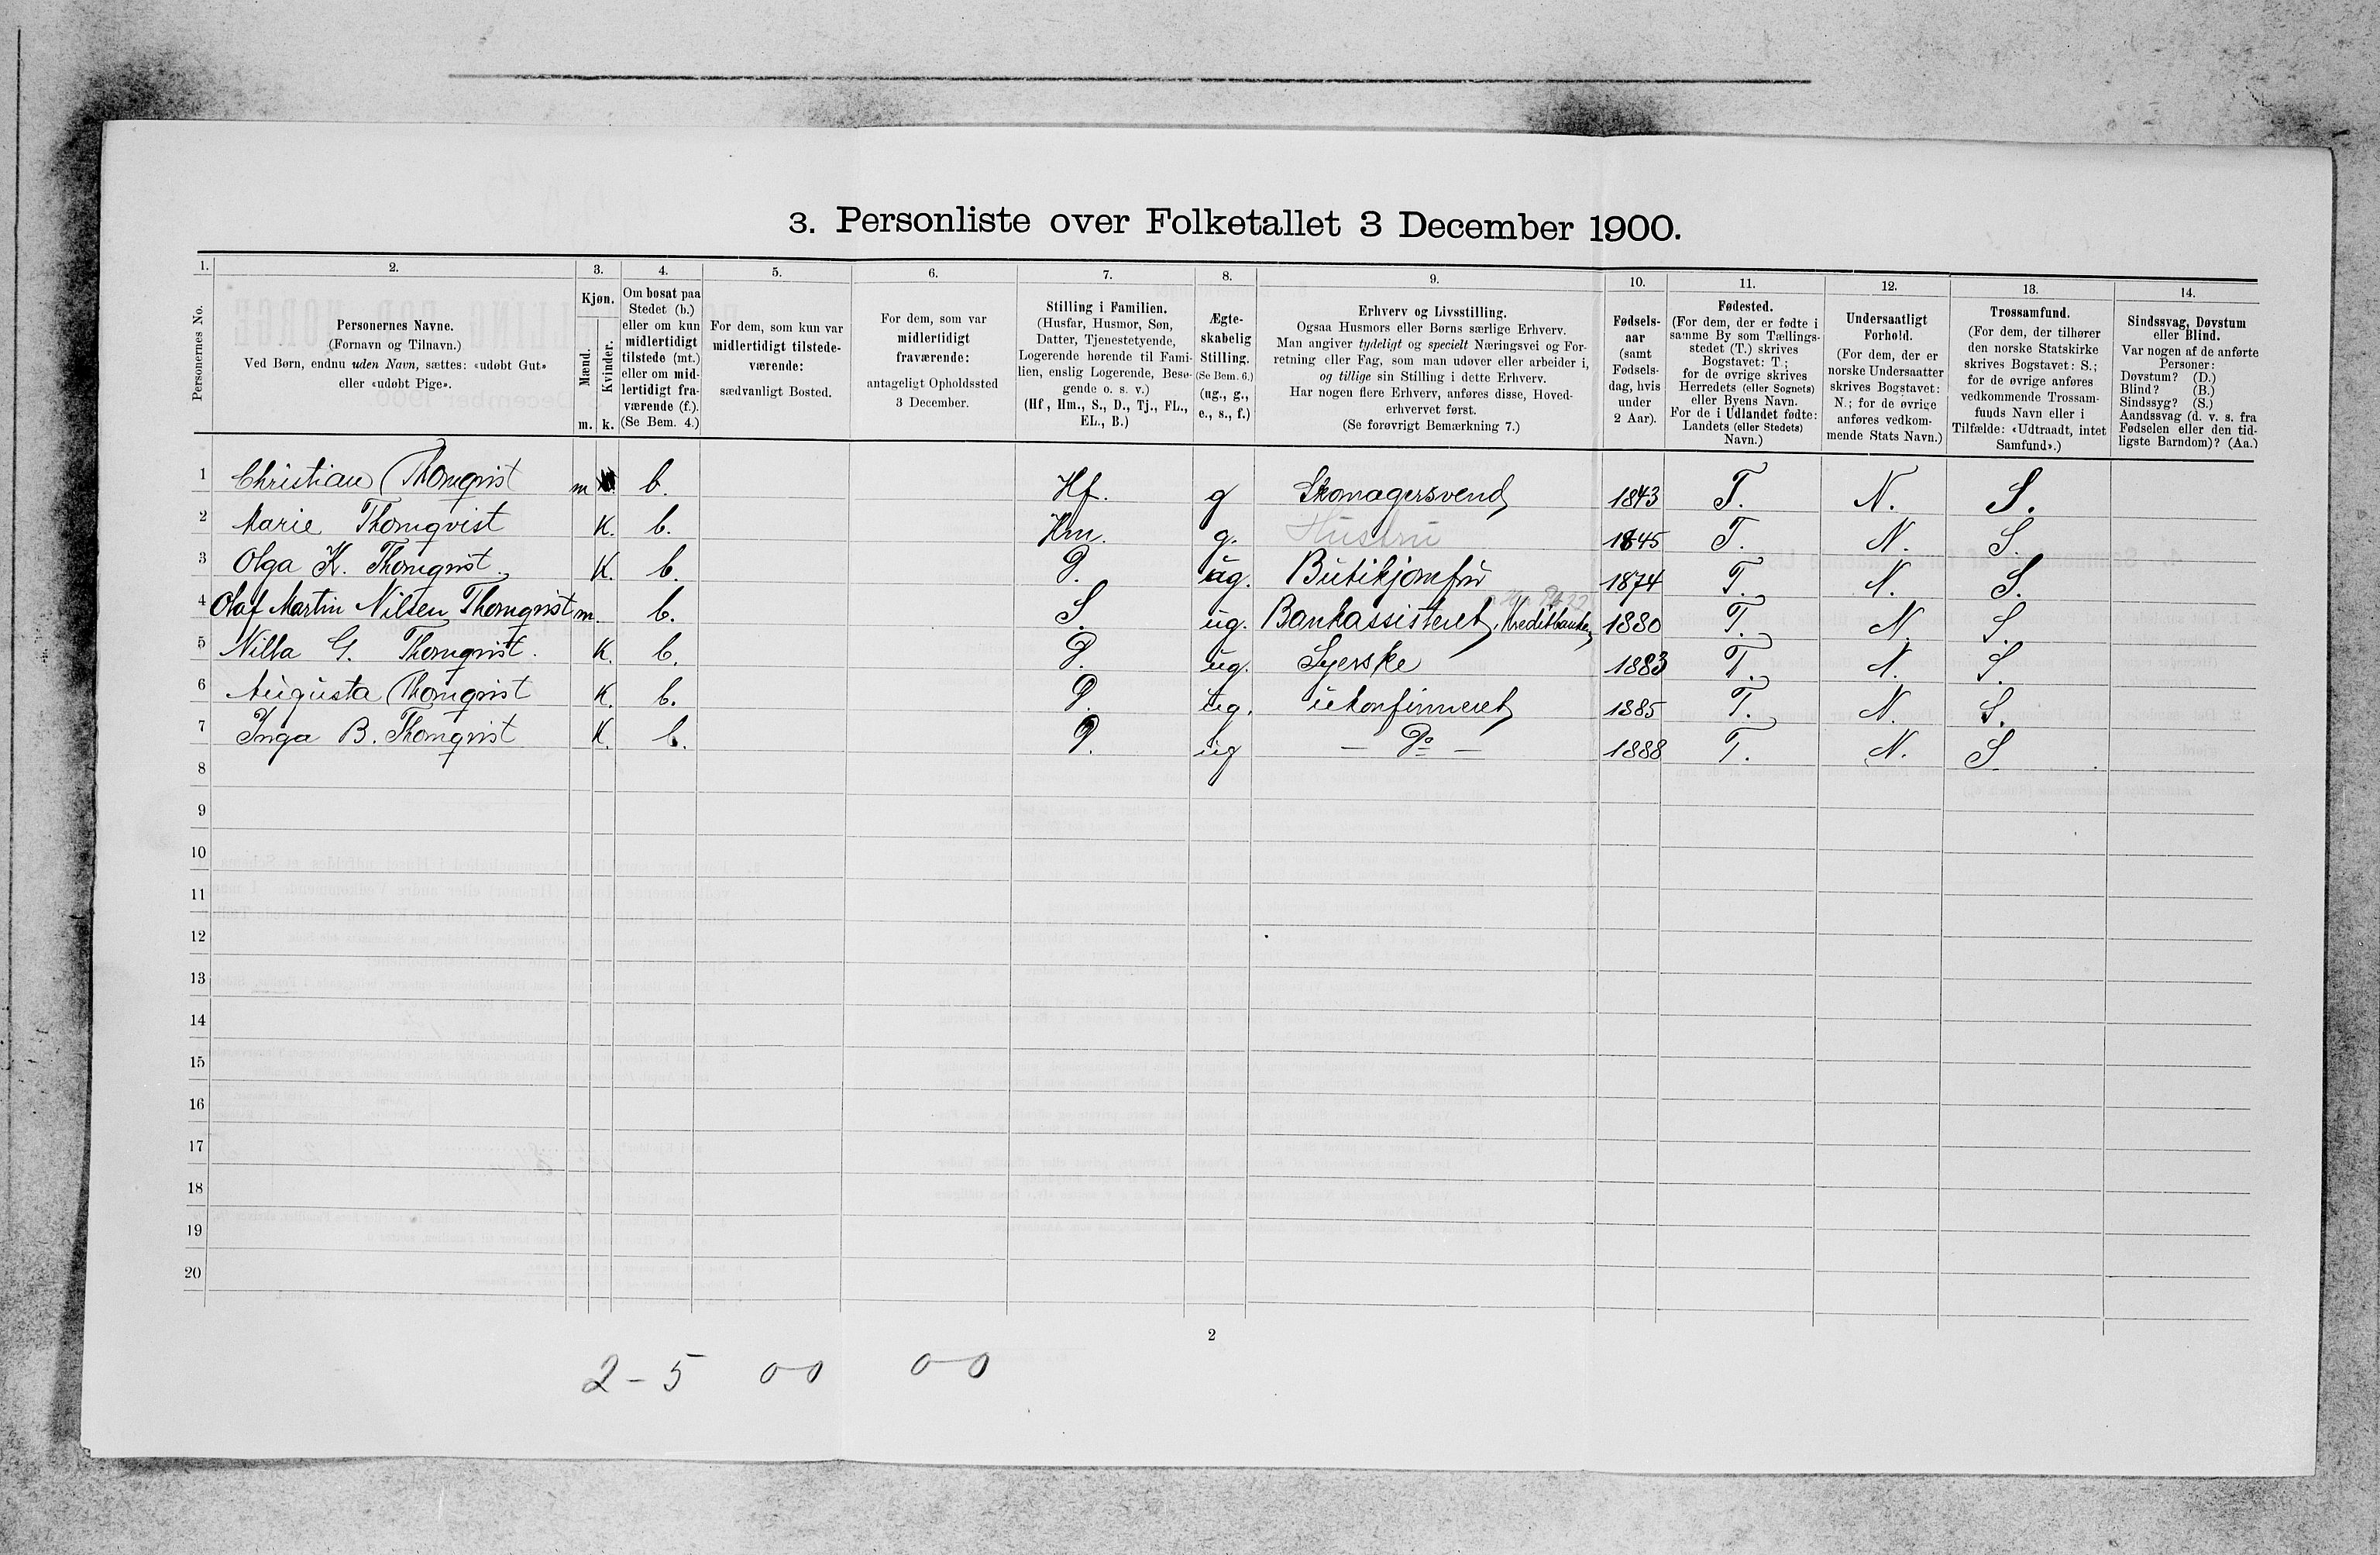 3. Personliste over Folketallet 3 December 1900.
1. 2. 3. 4. 5. 6. 7. 8. 9. 10. 11. 12. 13. 14.
Personernes No.
Personernes Navne.
(Fornavn og Tilnavn.)
Ved Børn, endnu uden Navn, sættes: «udøbt Gut»
eller «udøbt Pige».
Kjøn.
Mænd.
Kvinder.
m. k.
Om bosat paa
Stedet (b.)
eller om kun
midlertidigt
tilstede (mt.)
eller om mid-
lertidigt fra-
værende (f.).
(Se Bem. 4.)
For dem, som kun var
midlertidigt tilstede-
værende:
sædvanligt Bosted.
For dem, som var
midlertidigt
fraværende:
antageligt Opholdssted
3 December.
Stilling i Familien.
(Husfar, Husmor, Søn,
Datter, Tjenestetyende,
Logerende hørende til Fami-
lien, enslig Logerende, Besø-
gende o. s. v.)
(Hf, Hm., S., D., Tj., FL.,
EL., B.)
Ægte-
skabelig
Stilling.
(Se Bem. 6.)
(ug., g.,
e., s., f.)
Erhverv og Livsstilling.
Ogsaa Husmors eller Børns særlige Erhverv.
Man angiver tydeligt og specielt Næringsvei og For-
retning eller Fag, som man udøver eller arbeider i,
og tillige sin Stilling i dette Erhverv.
Har nogen flere Erhverv, anføres disse, Hoved-
erhvervet først.
(Se forøvrigt Bemærkning 7.)
Fødsels-
aar
(samt
Fødsels-
dag, hvis
under
2 Aar).
Fødested.
(For dem, der er fødte i
samme By som Tællings-
stedet (T.) skrives
Bogstavet: T;
for de øvrige skrives
Herredets (eller Sognets)
eller Byens Navn.
For de i Udlandet fødte:
Landets (eller Stedets)
Navn.)
Undersaatligt
Forhold.
(For dem, der er
norske Undersaatter
skrives Bogstavet:
N.; for de øvrige
anføres vedkom-
mende Stats Navn.)
Trossamfund.
(For dem, der tilhører
den norske Statskirke
skrives Bogstavet: S.;
for de øvrige anføres
vedkommende Trossam-
funds Navn eller i
Tilfælde: «Udtraadt, intet
Samfund».)
Sindssvag, Døvstum
eller Blind.
Var nogen af de anførte
Personer:
Døvstum? (D.)
Blind? (B.)
Sindssyg? (S.)
Aandssvag (d. v. s. fra
Fødselen eller den tid-
ligste Barndom)? (Aa.)
1 Christian Thomqvist m b. Hf. g Skomagersvend 1843 T. N. S.
2 Marie Thomqvist K. b. Hm. g. Hustru 1845 T. N. S.
3 Olga K. Thomqvist. K. b. D. ug. Butikjomfru 1874 T. N. S.
4 Olaf Martin Nilsen Thomqvist m. b. S. ug. Bankassistent, Kreditbanken 1880 T. N S.
5 Nilla G. Thomqvist. K. b. D. ug. Syerske 1883 T. N. S.
6 Augusta Thomqvist K. b. D. ug. ukonfirmeret 1885 T. N. S.
7 Inga B. Thomqvist K. b. D. ug — Do — 1888 T. N. S
8
9
10
11
12
13
14
15
16
17
18
19
20
2
2-5 0-0 0-0